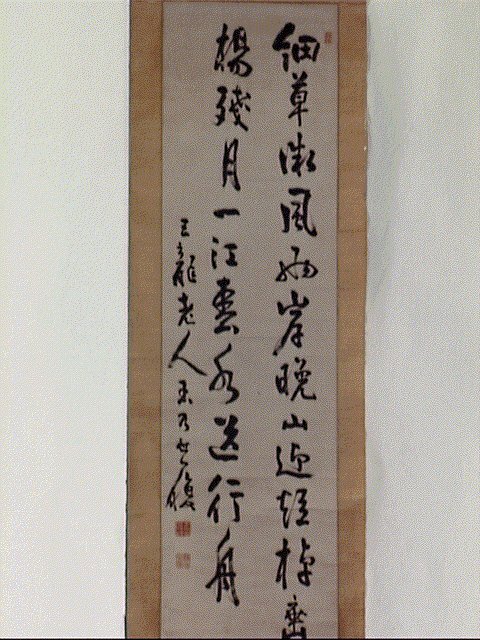 細草微風兩岸晚山迎短棹垂
楊殘月一江春水送行舟
五龍老人玉乃世履